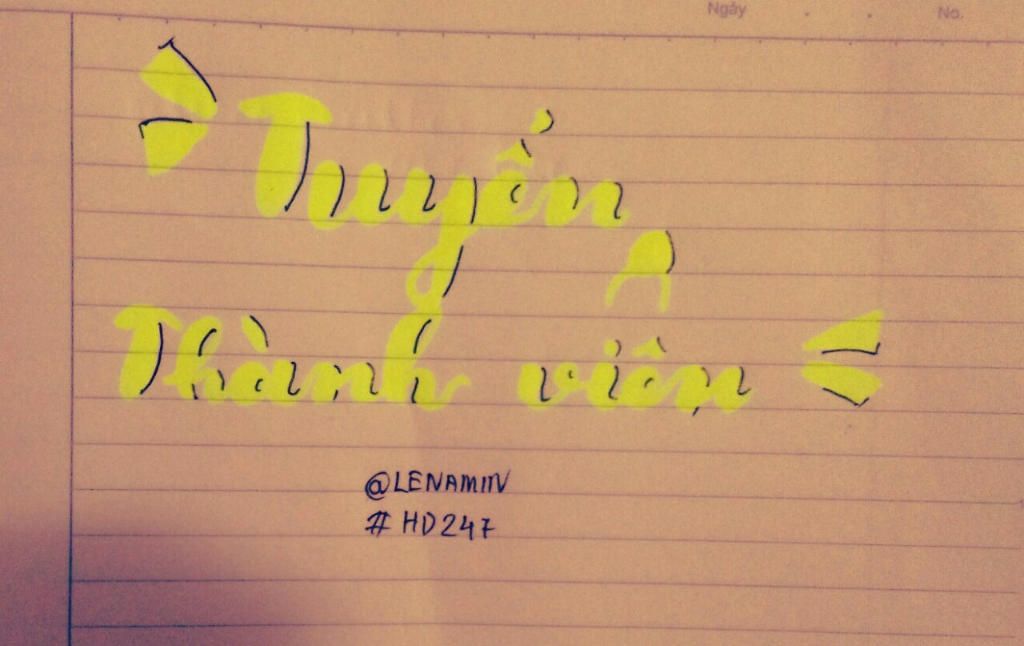 Ngày No.
Tuyển
Thành viên
@LENAMIIN
#HD247